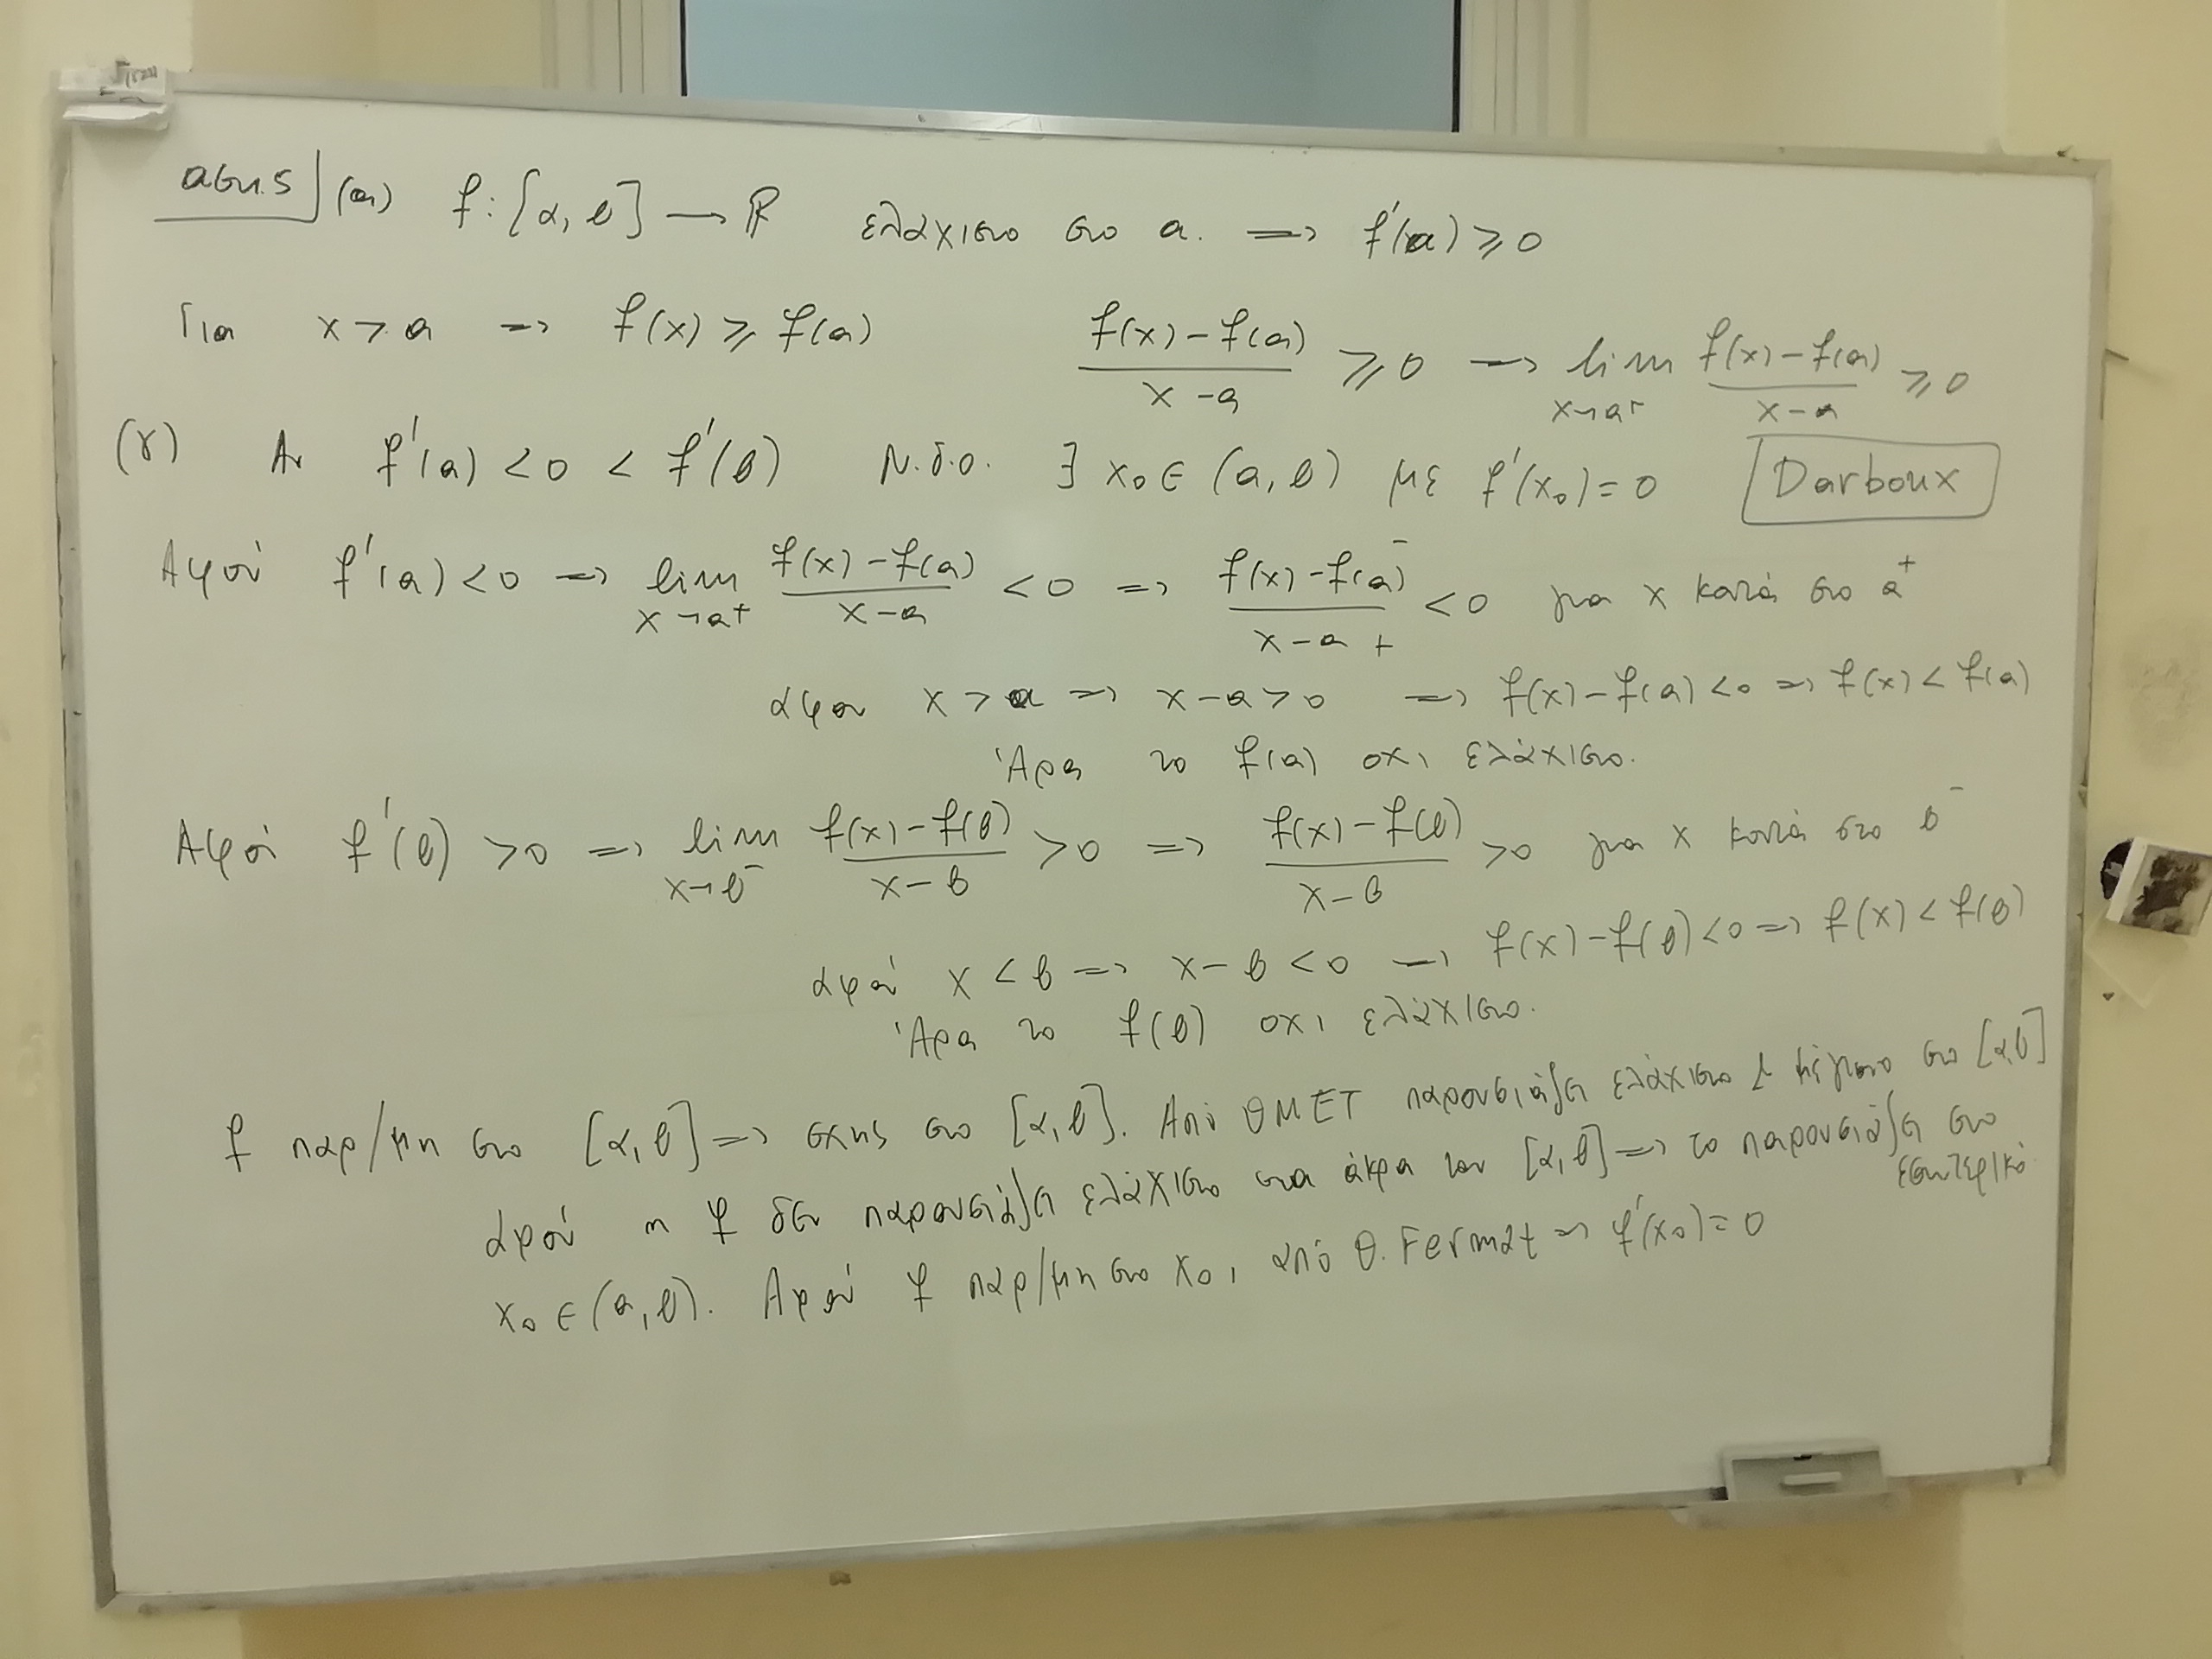 ασκ. 5 (α) f: [α, β] → ℝ ελάχιστο στο α. ⇒ f'(α) ≥ 0
Για x > α ⇒ f(x) ≥ f(α) (f(x) - f(α))/(x - α) ≥ 0 → lim_{x→α⁺} (f(x) - f(α))/(x - α) ≥ 0
(γ) Αν f'(α) < 0 < f'(β) Ν.δ.ο. ∃ x₀ ∈ (α, β) με f'(x₀) = 0 Darboux
Αφού f'(α) < 0 ⇒ lim_{x→α⁺} (f(x) - f(α))/(x - α) < 0 ⇒ (f(x) - f(α))⁻/(x - α +) < 0 για x κοντά στο α⁺
αφού x > α ⇒ x - α > 0 ⇒ f(x) - f(α) < 0 ⇒ f(x) < f(α)
Άρα το f(α) οχι ελάχιστο.
Αφού f'(β) > 0 ⇒ lim_{x→β⁻} (f(x) - f(β))/(x - β) > 0 ⇒ (f(x) - f(β))/(x - β) > 0 για x κοντά στο β⁻
αφού x < β ⇒ x - β < 0 → f(x) - f(β) < 0 ⇒ f(x) < f(β)
Άρα το f(β) οχι ελάχιστο.
f παρ/μη στο [α, β] ⇒ συνης στο [α, β]. Από ΘΜΕΤ παρουσιάζει ελάχιστο & μέγιστο στο [α, β]
αφού η f δεν παρουσιάζει ελάχιστο στα άκρα του [α, β] ⇒ το παρουσιάζει στο
εσωτερικό
x₀ ∈ (α, β). Αφού f παρ/μη στο x₀, από Θ. Fermat ⇒ f'(x₀) = 0